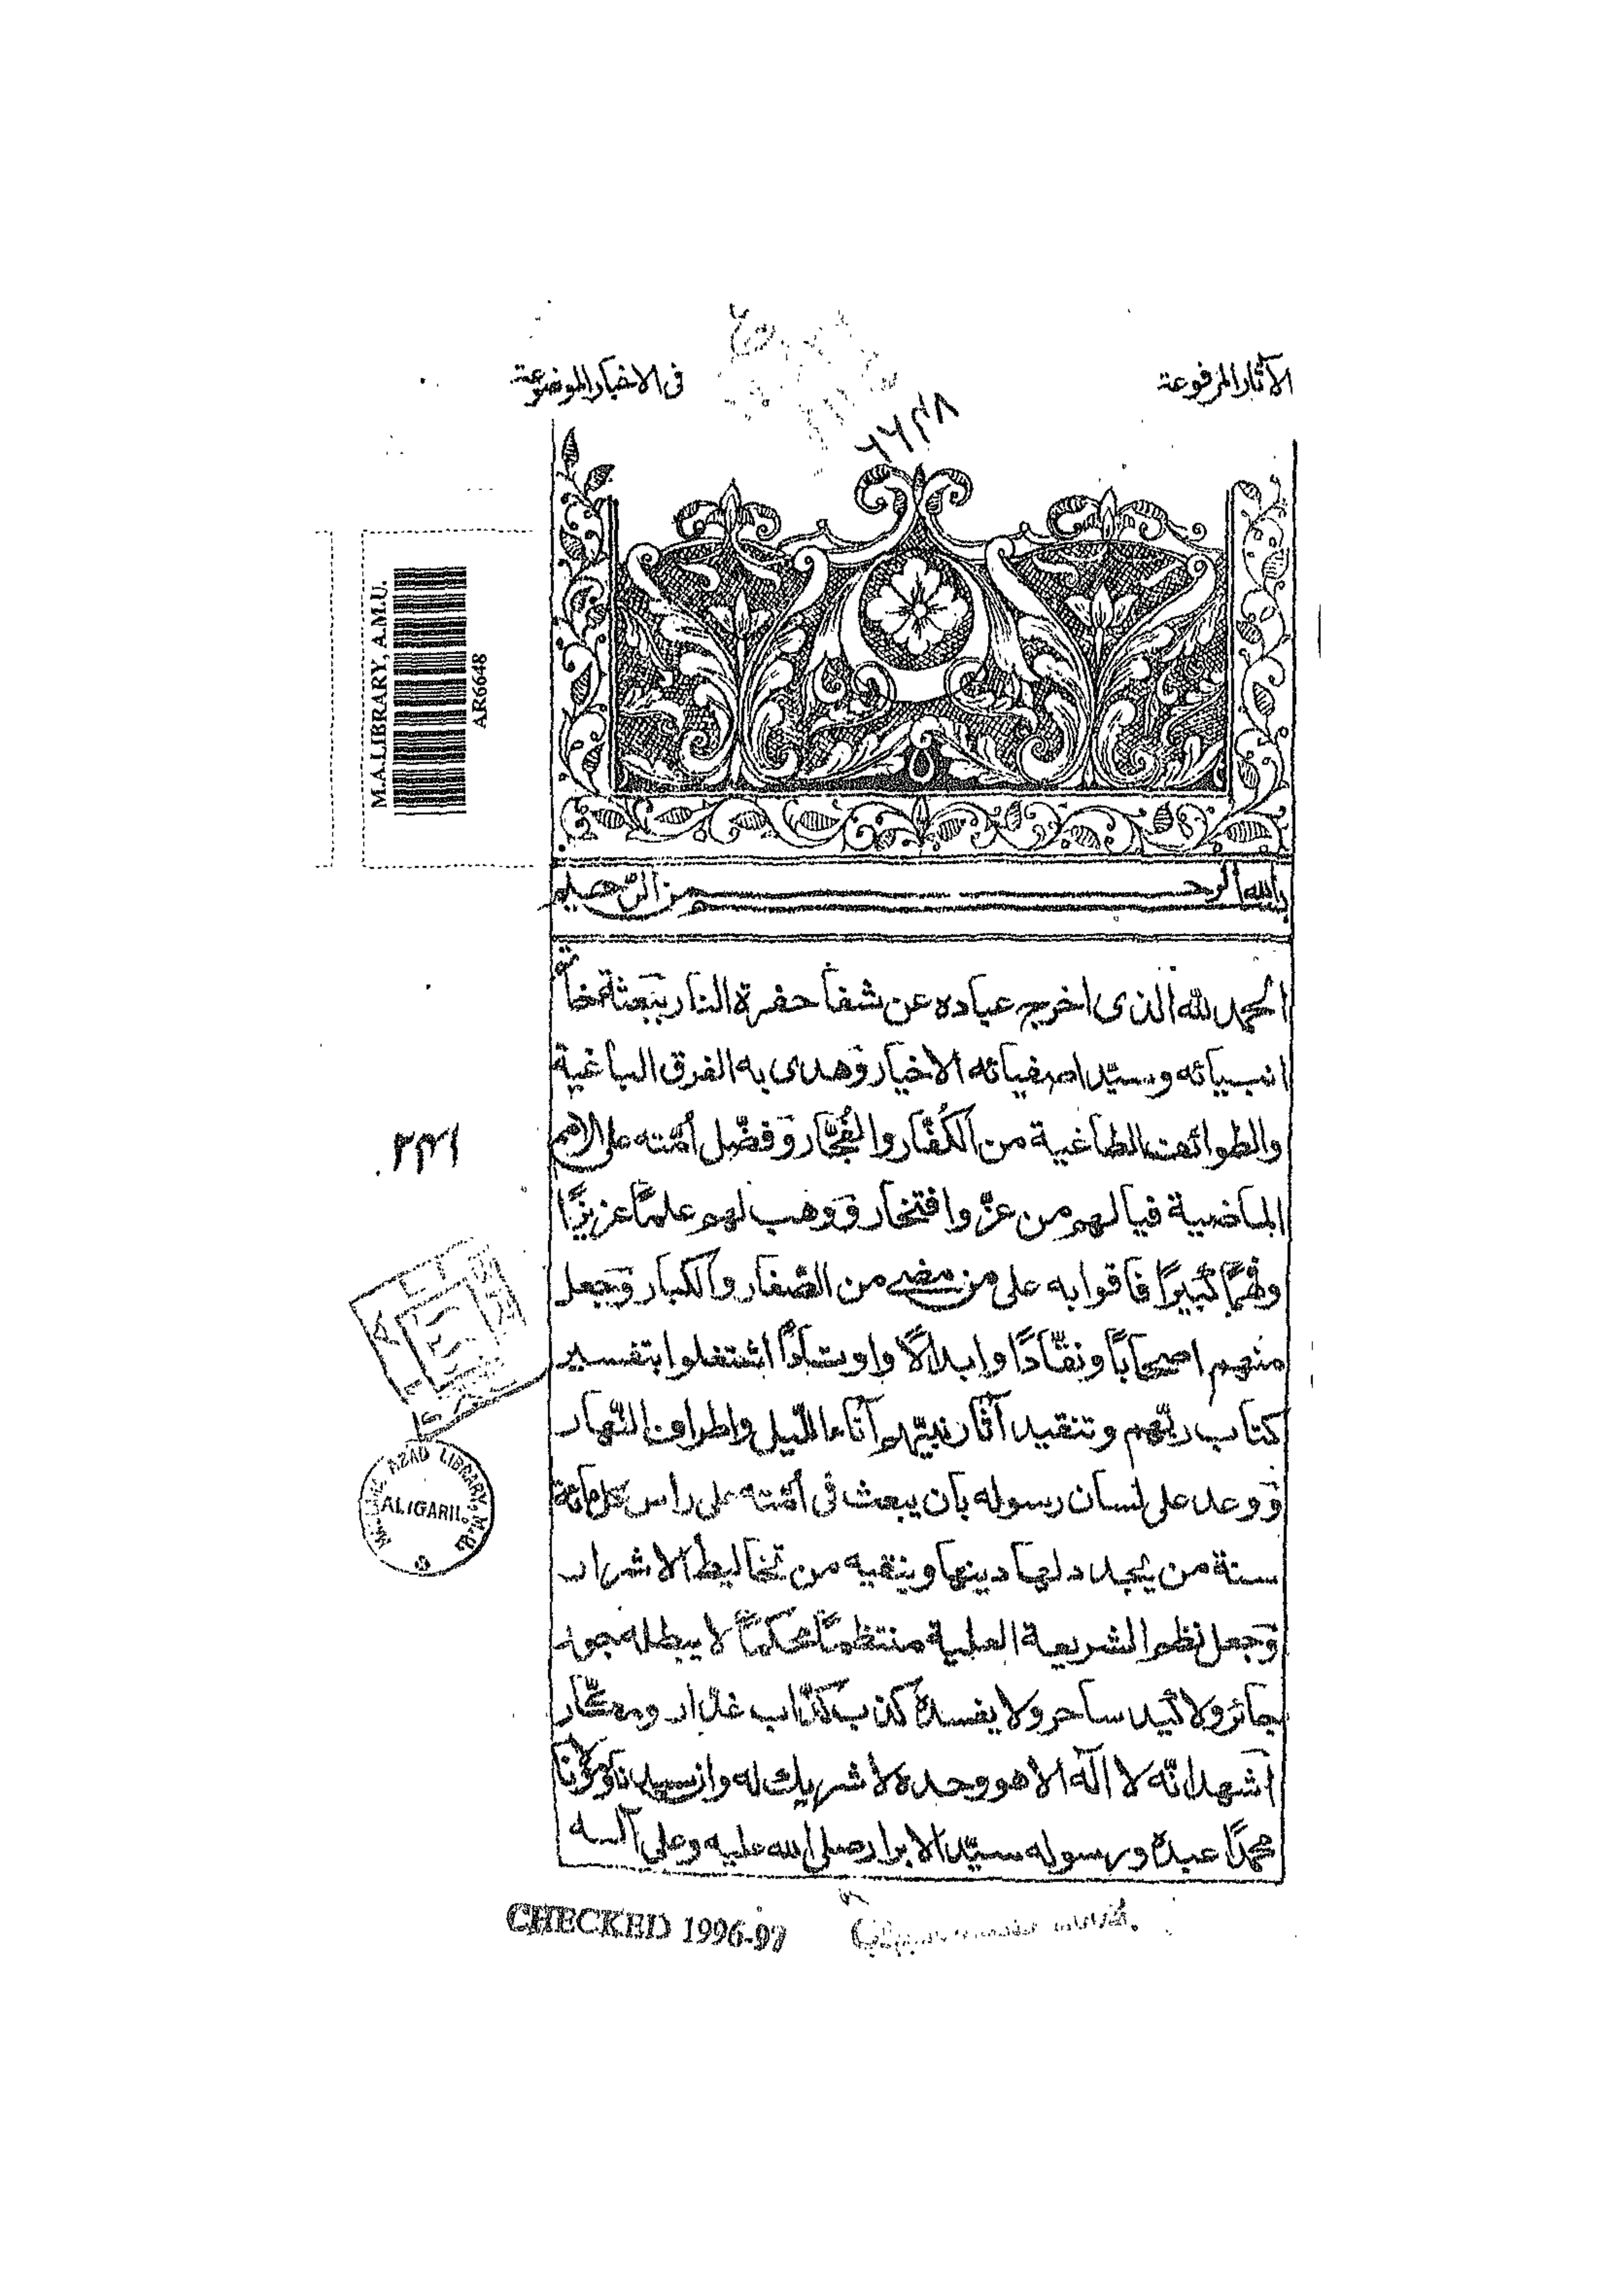 الآثار المرفوعة
فى الاخبار الموضوعة
M.A.LIBRARY, A.M.U.
AR6648
بسم الله الرحمن الرحيم
الحمد لله الذى اخرج عباده عن شفا حفرة النار ببعثة خاتم
انبيائه وسيّد اصفيائه الاخيار وَهدى به الفرق الباغية
والطوائف الطاغية من الكُفّار والفُجّار وَفضّل أمّته على الامم
الماضية فيا لهم من عزّ وافتخار وَوهب لهم علمًا عزيزًا
وفهمًا كبيرًا فاقوا به على من مضى من الصّغار والكبار وَجعل
منهم اصحابًا ونقّادًا وابدالًا واوتادًا اشتغلوا بتفسير
كتاب ربّهم وتنقيد آثار نبيّهم آناء اللّيل واطراف النّهار
وَوعد على لسان رسوله بان يبعث فى أمّته على راس كل مائة
سنة من يُجدد لها دينها وينقيه من تخاليط الاشرار
وَجعل نظم الشريعة العلية منتظمًا محكمًا لا يبطله جور
جائر ولا كيد ساحر ولا يفسده كذب كذّاب غدّار ومكّار
أشهد انّه لا اله الا هو وحده لا شريك له وان سيدنا ومولانا
محمدًا عبده ورسوله سيّد الابرار صلى الله عليه وعلى آله
AZAD LIBRARY
ALIGARH.
CHECKED 1996-97